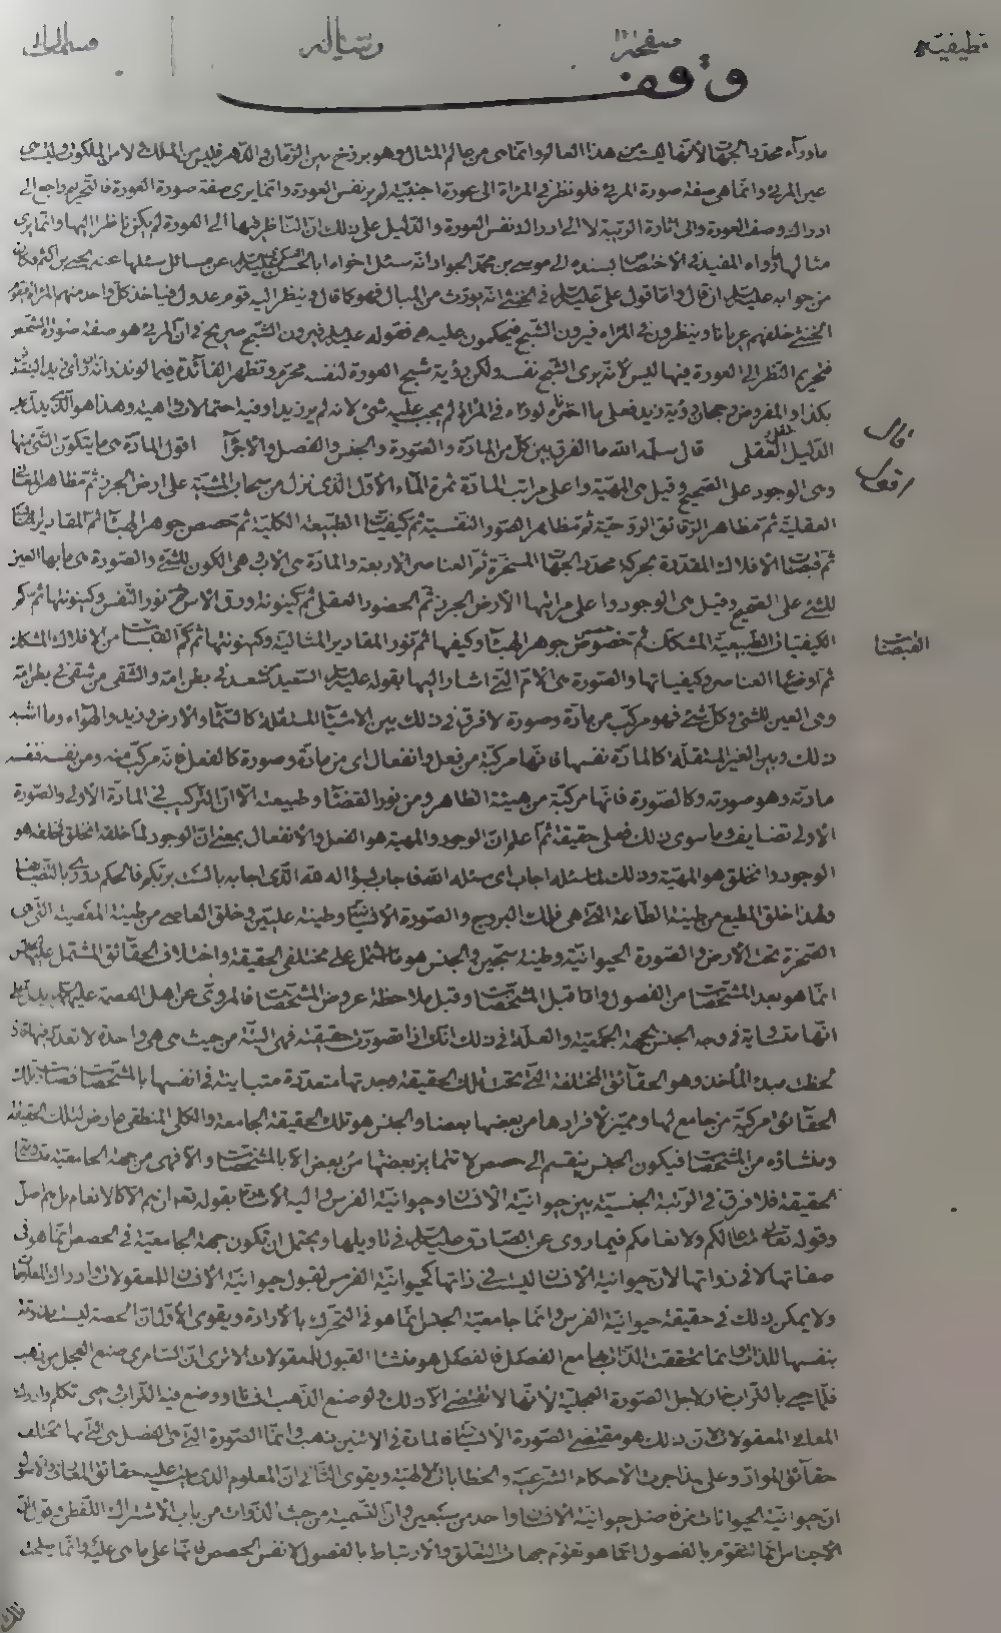 قطيفية
رسالة
وقف
ماوراء محدد الجهات لانها ليست من هذا العالم وانما هي من عالم المثال وهو برزخ بين الزمان والدهر فليس من الملك ولا من الملكوت وليست هي
عين المرئي وانما هي صفة صورة المرئي فلو نظر في المرآة الى عورة اجنبية لم ير نفس العورة وانما يرى صفة صورة العورة فالتحريم راجع الى
ادراك وصف العورة والى اثارة الريبة لا الى ادراك نفس العورة والدليل على ذلك ان الناظر فيها الى العورة لم يكن ناظرا اليها وانما يرى
مثالها مارواه المفيد في الاختصاص بسنده الى موسى بن محمد الجواد انه سئل اخواه ابا الحسن العسكري عليه السلام عن مسائل سئلها عنه يحيى بن اكثم وكان
من جوابه عليه السلام ان قال واما قول علي عليه السلام في الخنثى انه يورث من المبال فهو كما قال وينظر اليه قوم عدول فياخذ كل واحد منهم المرآة وتقوم
الخنثى خلفهم عريانا وينظرون في المرآة فيرون الشبح فيحكمون عليه فقوله عليه السلام فيرون الشبح صريح في ان المرئي هو صفة صورة الشخص
فتحريم النظر الى العورة فيها ليس لانه يرى الشبح نفسه ولكن رؤية شبح العورة لنفسه محرم وتظهر الفائدة فيما لو نذر انه ان رأى زيدا ليتصدقن
بكذا والمفروض رجحان رؤية زيد فعلى ما اخترناه لو رآه في المرآة لم يجب عليه شئ لانه لم ير زيدا وفيه احتمالات واهية وهذا هو الذي يدل عليه
الدليل العقلي قال سلمه الله ما الفرق بين كل من المادة والصورة والجنس والفصل والاجزاء اقول المادة هي ما يتكون الشئ منها
قال
اقول
وهي الوجود على الصحيح وقيل هي المهية واعلى مراتب المادة ثمرة الماء الاول الذي نزل من سحاب المشية على ارض الجرز ثم مظاهر المعاني
العقلية ثم مظاهر الرقائق الروحية ثم مظاهر الصور النفسية ثم كيفيات الطبيعة الكلية ثم حصص جوهر الهباء ثم المقادير
ثم قبضات الافلاك المقدرة بحركة محدد الجهات المسخرة ثم العناصر الاربعة والمادة هي الاب وهي الكون للشئ والصورة هي ما بها العين
للشئ على الصحيح وقيل هي الوجود واعلى مراتبها الارض الجرز ثم الحضور العقلي ثم كينونة ورق الاس ثم نور النفس وكينونتها ثم
الكيفيات الطبيعية المشكلات ثم حصص جوهر الهباء وكيفها ثم نور المقادير المثالية وكينونتها ثم كم القبضات من الافلاك
القبضات
ثم اوضاع العناصر وكيفياتها والصورة هي الام التي اشار اليها بقوله عليه السلام السعيد من سعد في بطن امه والشقي من شقي في بطن امه
وهي العين للشئ وكل شئ فهو مركب من مادة وصورة لا فرق في ذلك بين الاشياء المستقلة كالسماء والارض وزيد والهواء وما اشبه
ذلك وبين الغير المستقلة كالمادة نفسها فانها مركبة من فعل وانفعال اى من مادة وصورة كالفعل فانه مركب منه ومن نفسه فنفسه
مادته وهو صورته وكالصورة فانها مركبة من هيئة الظاهر ومن نور القضاء وطبيعته الا ان التركيب في المادة الاولى والصورة
الاولى تضايف وما سوى ذلك فعلى حقيقة ثم اعلم ان الوجود والمهية هو الفعل والانفعال بمعنى ان الوجود لما خلقه انخلق فخلقه هو
الوجود وانخلق هو المهية وذلك لما سئله اجاب اى سئله الله فاجاب لسؤاله فقه الذي اجابه بالست بربكم فالحكم
ولهذا خلق المطيع من طينة الطاعة التي هي فلك البروج والصورة الانسانية وطينة عليين وخلق العاصي من طينة المعصية التي هي
الصخرة تحت الارض والصورة الحيوانية وطينة سجين والجنس هو ما اشتمل على مختلفي الحقيقة واختلاف الحقائق المشتمل عليها الجنس
انما هو بعد المشخصات من الفصول واما قبل المشخصات وقبل ملاحظة عروض المشخصات فالمروي عن اهل العصمة عليهم السلام يدل على
انها متساوية في وجه الجنس بجهة الجمعية والعلة في ذلك انك اذا تصورت حقيقته فهي البتة من حيث هي هي واحدة لا تعدد فيها فاذا
لحظت مبدء المأخذ وهو الحقائق المختلفة التي تحت تلك الحقيقة وجدتها متعددة متباينة في انفسها بالمشخصات فصارت تلك
الحقائق مركبة من جامع لها ومميز لافرادها من بعضها بعضا والجنس هو تلك الحقيقة الجامعة والكلي المنطقي عارض لتلك الحقيقة
من المشخصات فيكون الجنس ينقسم الى حصص لا تتمايز بعضها من بعض الا بالمشخصات والا فهي من جهة الجامعية متساوية
الحقيقة فلا فرق في الرتبة الجنسية بين حيوانية الانسان وحيوانية الفرس واليه الاشارة بقوله تعالى ان هم الا كالانعام بل هم اضل
وقوله تعالى متاعا لكم ولانعامكم فيما روى عن الصادق عليه السلام في تاويلها ويحتمل ان تكون جهة الجامعية في الحصص انما هو في
صفاتها لا في ذواتها لان حيوانية الانسان ليست في ذاتها كحيوانية الفرس لقبول حيوانية الانسان للمعقولات وادراك
ولا يمكن ذلك في حقيقة حيوانية الفرس وانما جامعية الجنس انما هو في التحرك بالارادة ويقوى الاول ان الحصة ليست
بنفسها للذات وانما تحققت الذات بها مع الفصل فالفصل هو منشأ القبول للمعقولات الا ترى ان السامري صنع العجل من ذهب
فلما حيي بالتراب خار لاجل الصورة العجلية لانها لا تقتضي الا ذلك ولو صنع الذهب انسانا ووضع فيه التراب وحيى تكلم وادرك
المعاني المعقولات لان ذلك هو مقتضى الصورة الانسانية فالمادة في الاثنين ذهب وانما الصورة التي هي الفصل هي التي بها تختلف
حقائق المواد وعلى هذا جرت الاحكام الشرعية والخطابات الالهية ويقوى الثاني ان المعلوم الذي عليه حقائق المعاني
ان حيوانية الحيوانات من فاضل حيوانية الانسان واحد من سبعين وان التسمية من حيث الذوات من باب الاشتراك اللفظي وقول ان
الاجناس انما تتقوم بالفصول انما هو تقوم جهات التعلق والارتباط بالفصول لا نفس الحصص فانها على ما هي عليه وانما
تلك